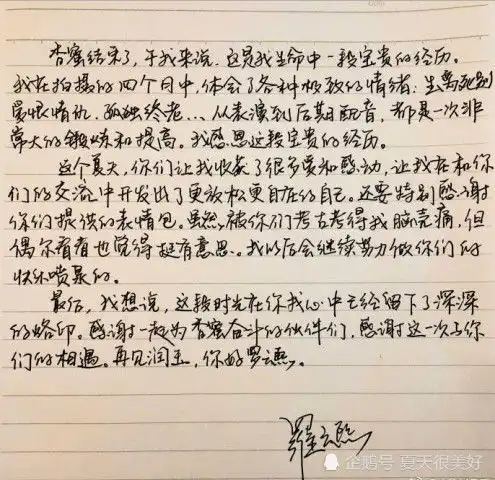 香蜜结束了，于我来说，这是我生命中一段宝贵的经历。
我在拍摄的四个月中，体会了各种极致的情绪：生离死别
爱恨情仇，孤独终老...从表演到后期配音，都是一次非
常大的锻炼和提高。我感恩这段宝贵的经历。
这个夏天，你们让我收获了很多爱和感动，让我在和你
们的交流中开发出了更放松更自在的自己。还要特别感谢
你们提供的表情包。虽然被你们考古考得我脑壳痛，但
偶尔看看也觉得挺有意思。我以后会继续努力做你们的
快乐喷泉的。
最后，我想说，这段时光在你我心中已经留下了深深
的烙印。感谢一起为香蜜奋斗的伙伴们，感谢这一次与你
们的相遇。再见润玉，你好罗云熙。
羅云熙
企鹅号 夏天很美好